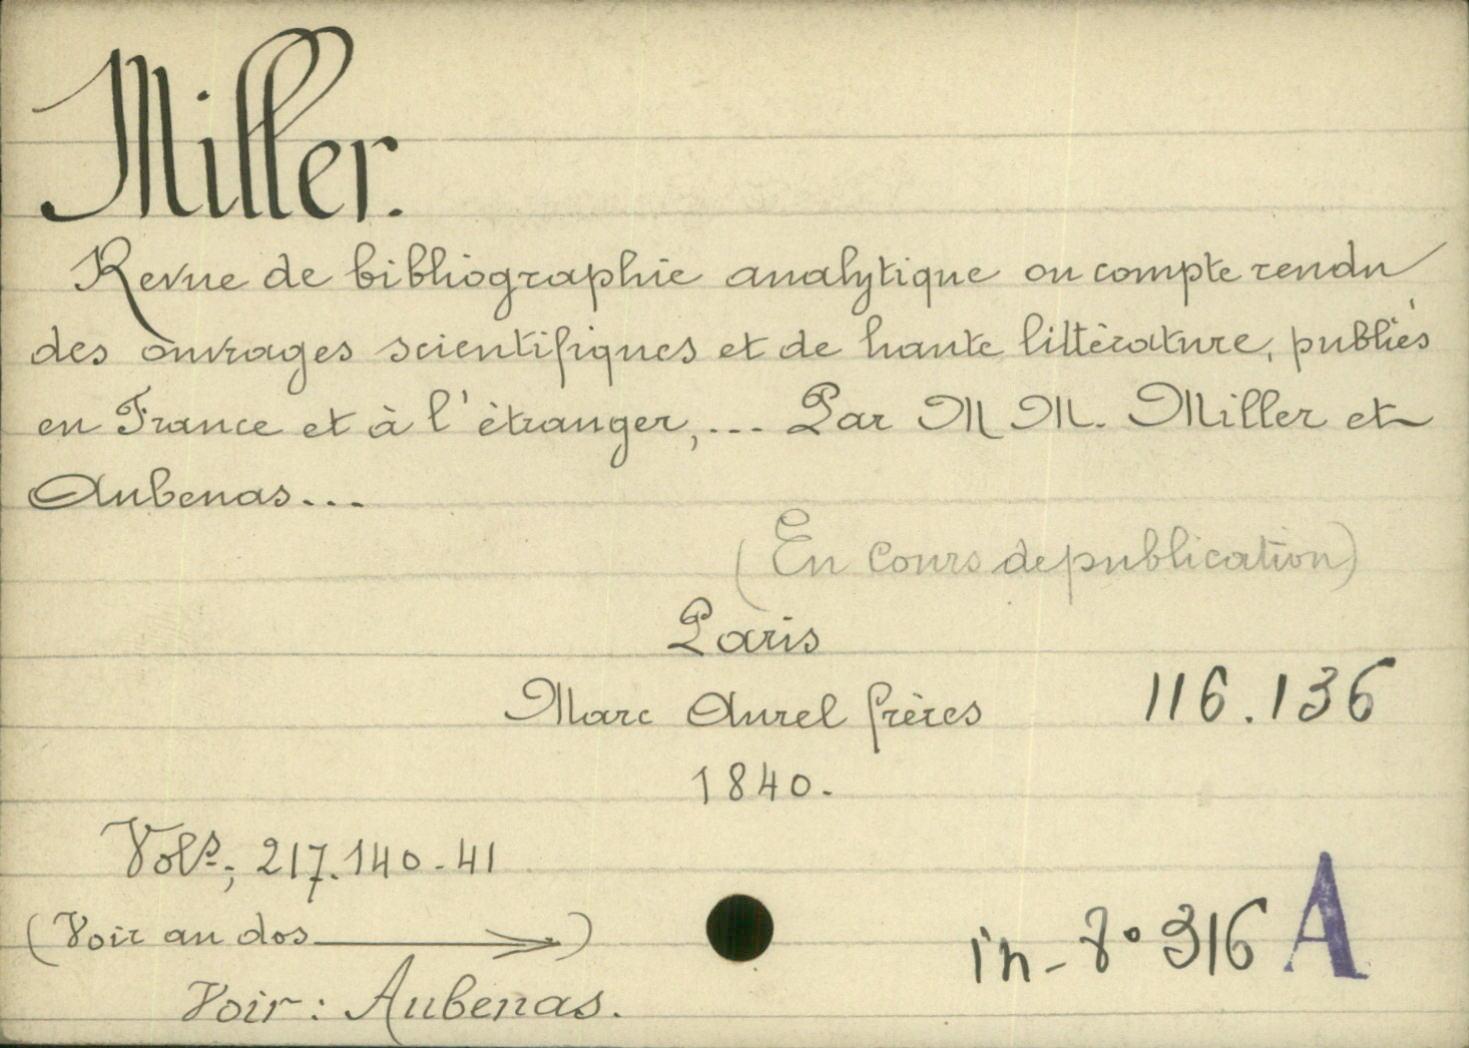 Miller.
Revue de bibliographie analytique ou compte rendu
des ouvrages scientifiques et de haute littérature, publiés
en France et à l'étranger,... Par MM. Miller et
Aubenas...
(En cours de publication)
Paris
Marc Aurel frères 116.136
1840.
Vols; 217.140-41
(Voir au dos →)
in-8° 316 A
Voir: Aubenas.